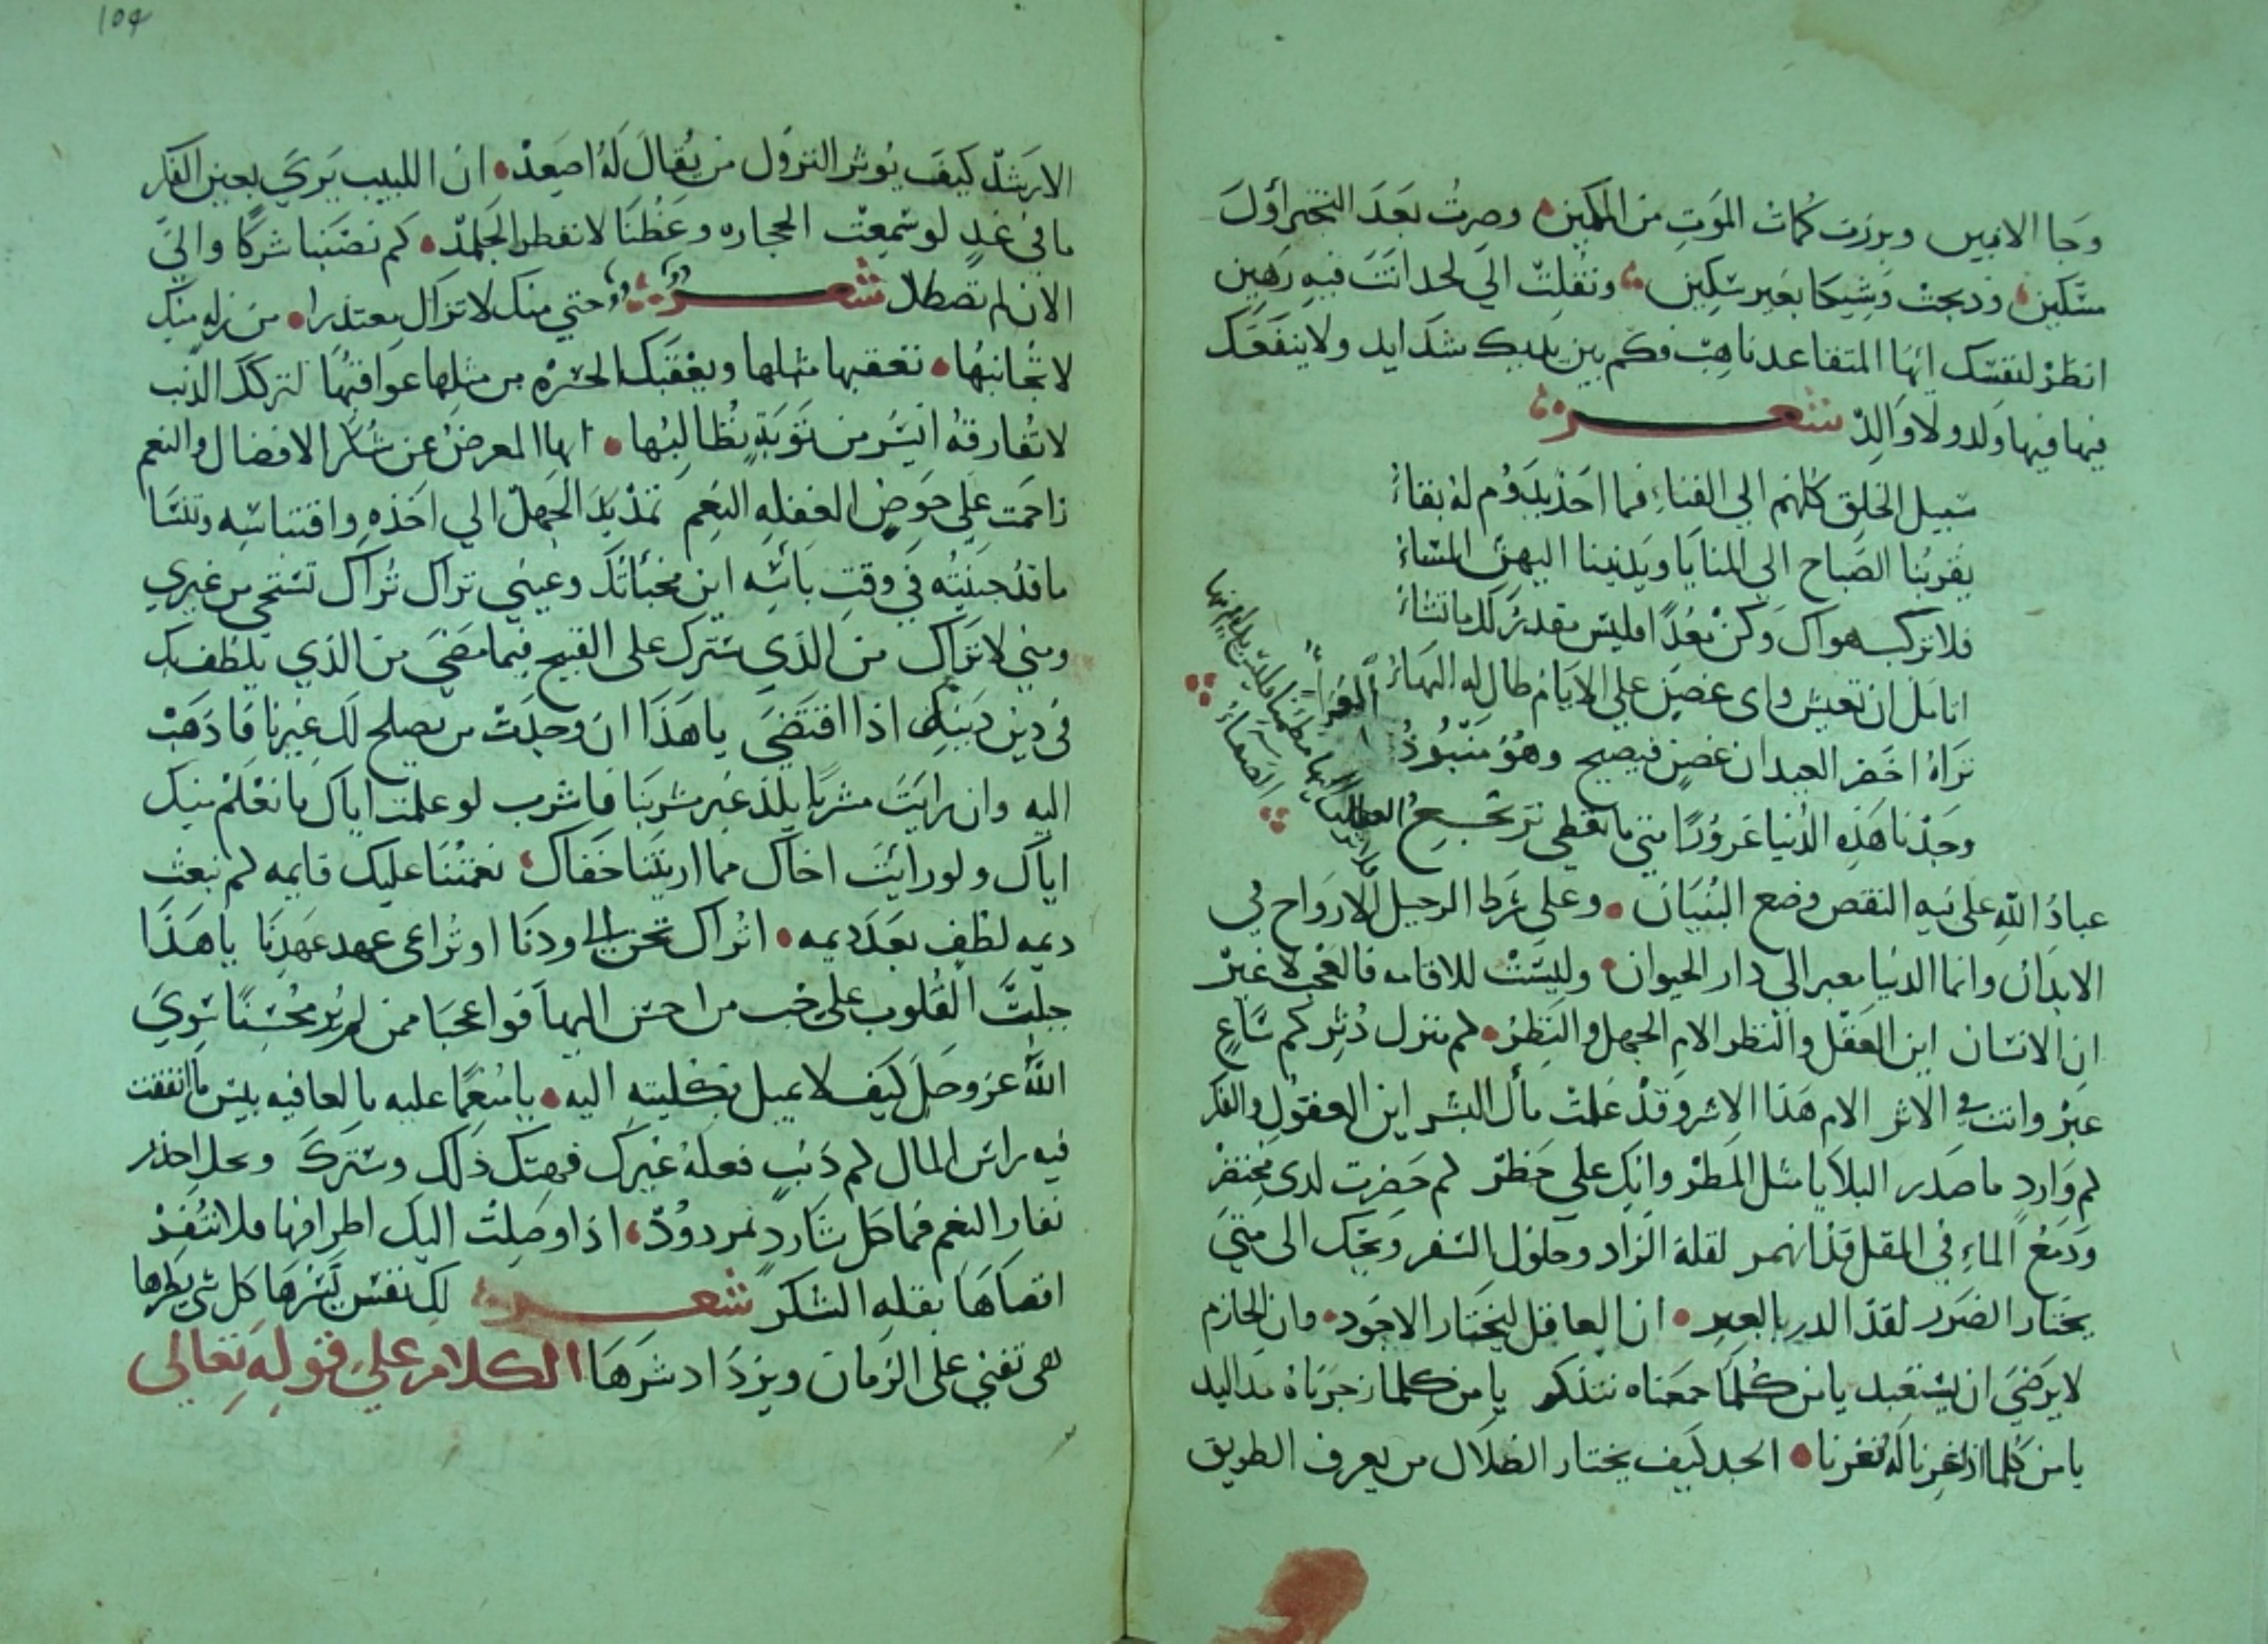 وجا الانين وبرزت كمات الموت من الكمين وصرت بعد التجبر أول
مسكين وذبحت وشيكا بغير سكين ونقلت الي لحد انت فيه رهين
انظر لنفسك ايها المتقاعد ناهب فكم بين يديك شدايد ولا ينفعك
فيها فيها ولد ولا والد شعر
سبيل الخلق كلهم الي الفناء فما احد يدوم له بقاء
يقربنا الصباح الي المنايا ويدنينا اليهن المساء
فلا تركب هواك وكن معدا فليس مقدر لك ما تشاء
اتامل ان تعيش واى غصن علي الايام طال له البهاء
تراه اخضر العيدان غصن فيصبح وهو منبوذ
وجدنا هذه الدنيا غرورا متي ما تعطي ترتجع العطا
عباد الله على نيه النقص وضع البنيان وعلى شرط الرحيل الارواح في
الابدان وانما الدنيا معبر الي دار الحيوان وليست للاقامه فالعجب لا غير
ان الانسان اين العقل والنظر الام الجهل والنظر لم منزل دثر كم ساع
عبر وانت في الاثر الام هذا الاشر وقد علمت مأل البشر اين العقول والفكر
لم وارد ما صدر البلايا مثل المطر وانك علي خطر لم حضرت لدى محتضر
ودمع الماء في المقل قد انهمر لقلة الزاد وطول السفر ويحك الى متي
يختار الضرر لقد الدر بالبعر ان العاقل ليختار الاجود وان الحازم
لا يرضي ان يستعبد يا من كلما جمعناه تبدد يا من كلما زجرناه مد اليد
يا من كلما اذا غرنا له نفرنا الجد كيف يختار الضلال من يعرف الطريق
104
الارشد كيف يوثر النزول من يقال له اصعد ان اللبيب يري بعين الفكر
ما في غد لو سمعت الحجاره وعظنا لانفطر الجلمد كم نصبنا شركا والي
الان لم تصطاد شعر حتي منك لا تزال معتذرا من زله منك
لا تجانبها تعقبها مثلها ويعقبك الحسره من مثلها عواقبها لتركك الذنب
لا تفارقه ايسر من توبة تطالبها ايها المعرض عن شكر الافضال والنعم
زاحمت على حوض الغفله النعم تمد يد الجهل الي اخذه واقتناسه وتنسا
ما قد جنيته في وقت بأسه اين مخبأتك وعيني تراك تراك تستحي من غيري
ومني لا تراك من الذي سترك على القبيح فيما مضي من الذي يلطف بك
في دين دينك اذا اقتضي يا هذا ان وجدت من يصلح لك غيرنا فاذهب
اليه وان رايت مشربا يلذ غير مشربنا فاشرب لو علمت اياك ما نعلم منك
اياك ولو رايت اخاك مما اريتنا خفاك نعمتنا عليك قايمه لم نبعث
ديمه لطف بعد ديمه اتراك تحن الي ودنا او تراعى عهد عهدنا يا هذا
جبلت القلوب على حب من احسن اليها فواعجبا ممن لم ير محسنا سوي
الله عز وجل كيف لا يميل بكليته اليه يا منعما عليه بالعافيه بيس ما انفقت
فيه راس المال لم ذنب فعله غيرك فهتك ذلك وسترك ويحك احذر
نفار النعم فما كل شارد بمردود اذا وصلت اليك اطرافها فلا تنفر
اقصاها بقله الشكر شعر لك نفس يسرها كل شي يضرها
هى تفني على الزمان ويزداد شرها الكلام علي قوله تعالى